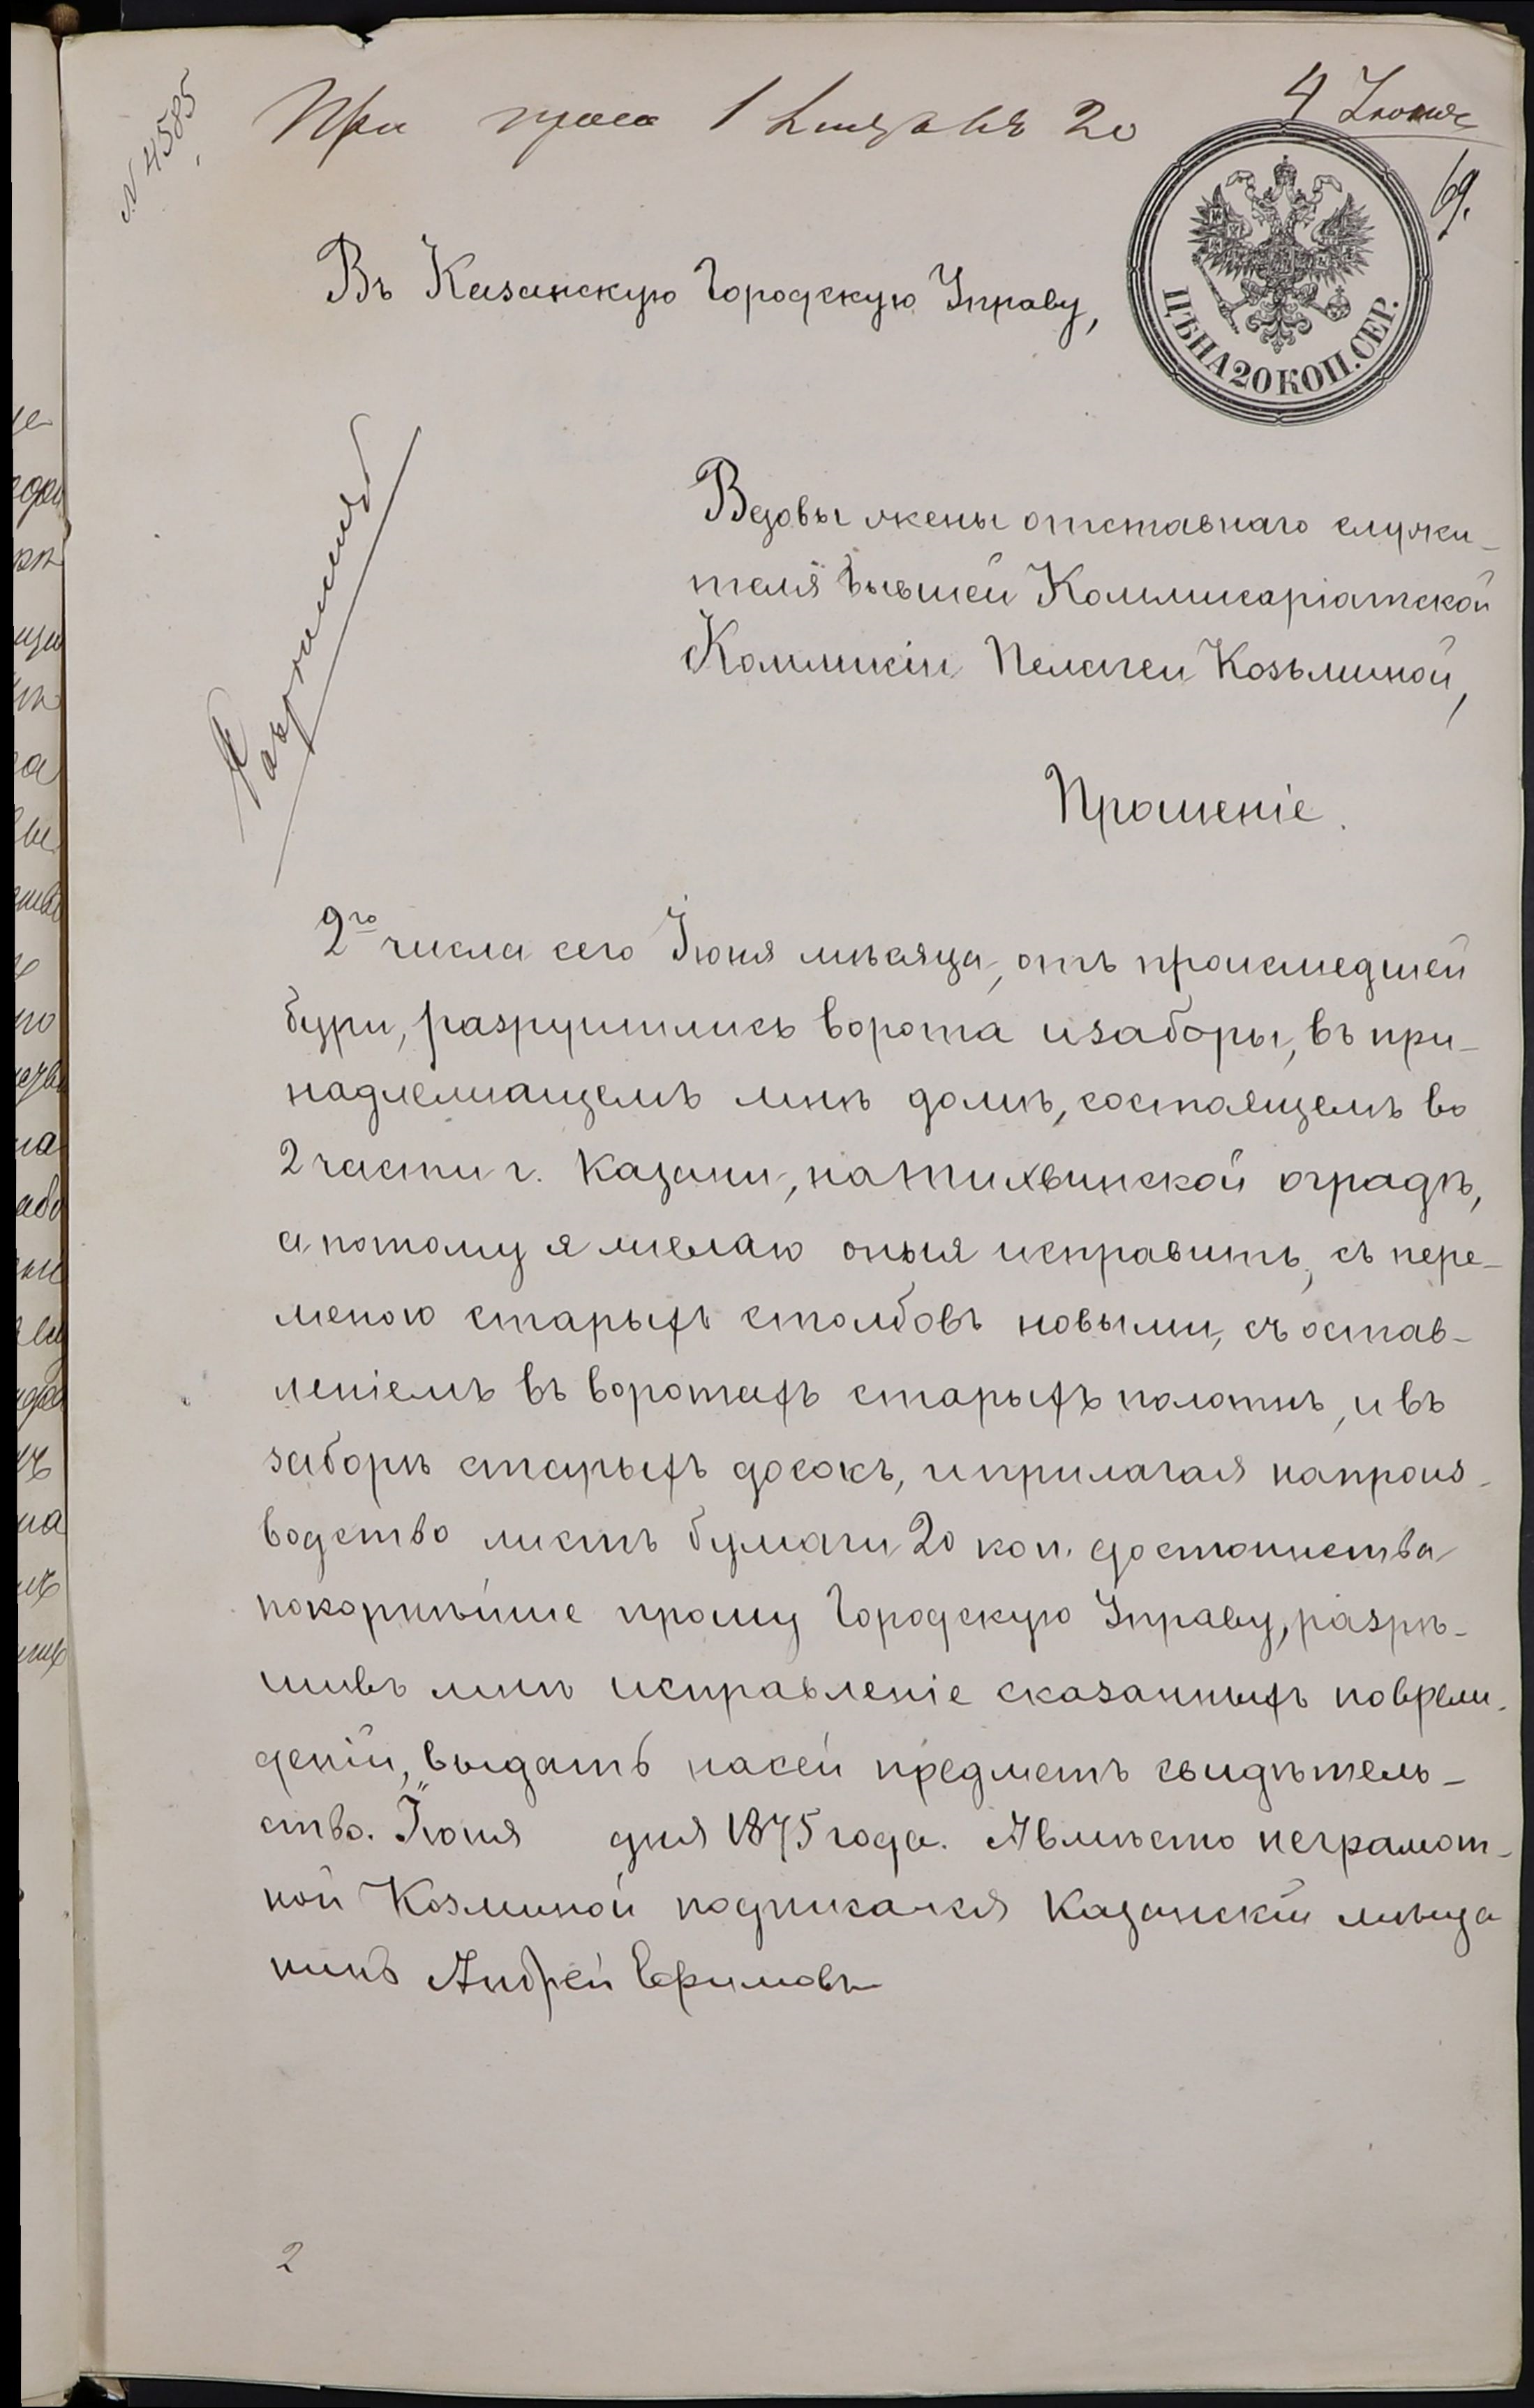 N 4585
При 1 20
4 Июня
69.
ЦѢНА 20 КОП. СЕР.
Въ Казанскую Городскую Управу,
Вдовы жены отставнаго служи-
теля бывшей Коммисаріатской
Коммисіи Пелагеи Козьминой,
Разрешить
Прошеніе.
2го числа сего Іюня мѣсяца, отъ происшедшей
бури, разрушились ворота и заборы, въ при-
надлежащемъ мнѣ домѣ, состоящемъ во
2 части г. Казани, на Тихвинской оградѣ,
а потому я желаю оныя исправить, съ пере-
меною старыхъ столбовъ новыми, съ остав-
леніемъ въ воротахъ старыхъ полотнъ, и въ
заборѣ старыхъ досокъ, и прилагая на произ-
водство листъ бумаги 20 коп. достоинства
покорнѣйше прошу Городскую Управу, разрѣ-
шивъ мнѣ исправленіе сказанныхъ повреж-
деній, выдать на сей предметъ свидѣтель-
ство. Іюня " дня 1875 года. А вмѣсто неграмот-
ной Козминой подписался Казанскій мѣща
нинъ Андрей Ефимовъ
2